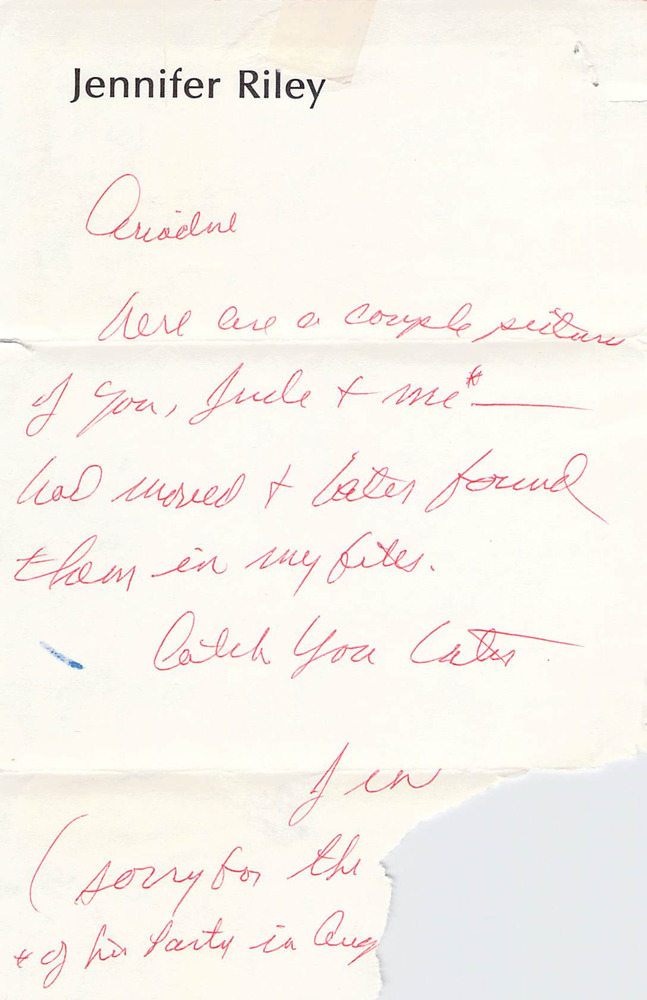 Jennifer Riley
Ariadne
here are a couple pictures
of you, Jude + me*—
had moved + later found
them in my files.
Catch You Later
Jen
(sorry for the
* of his Party in Aug